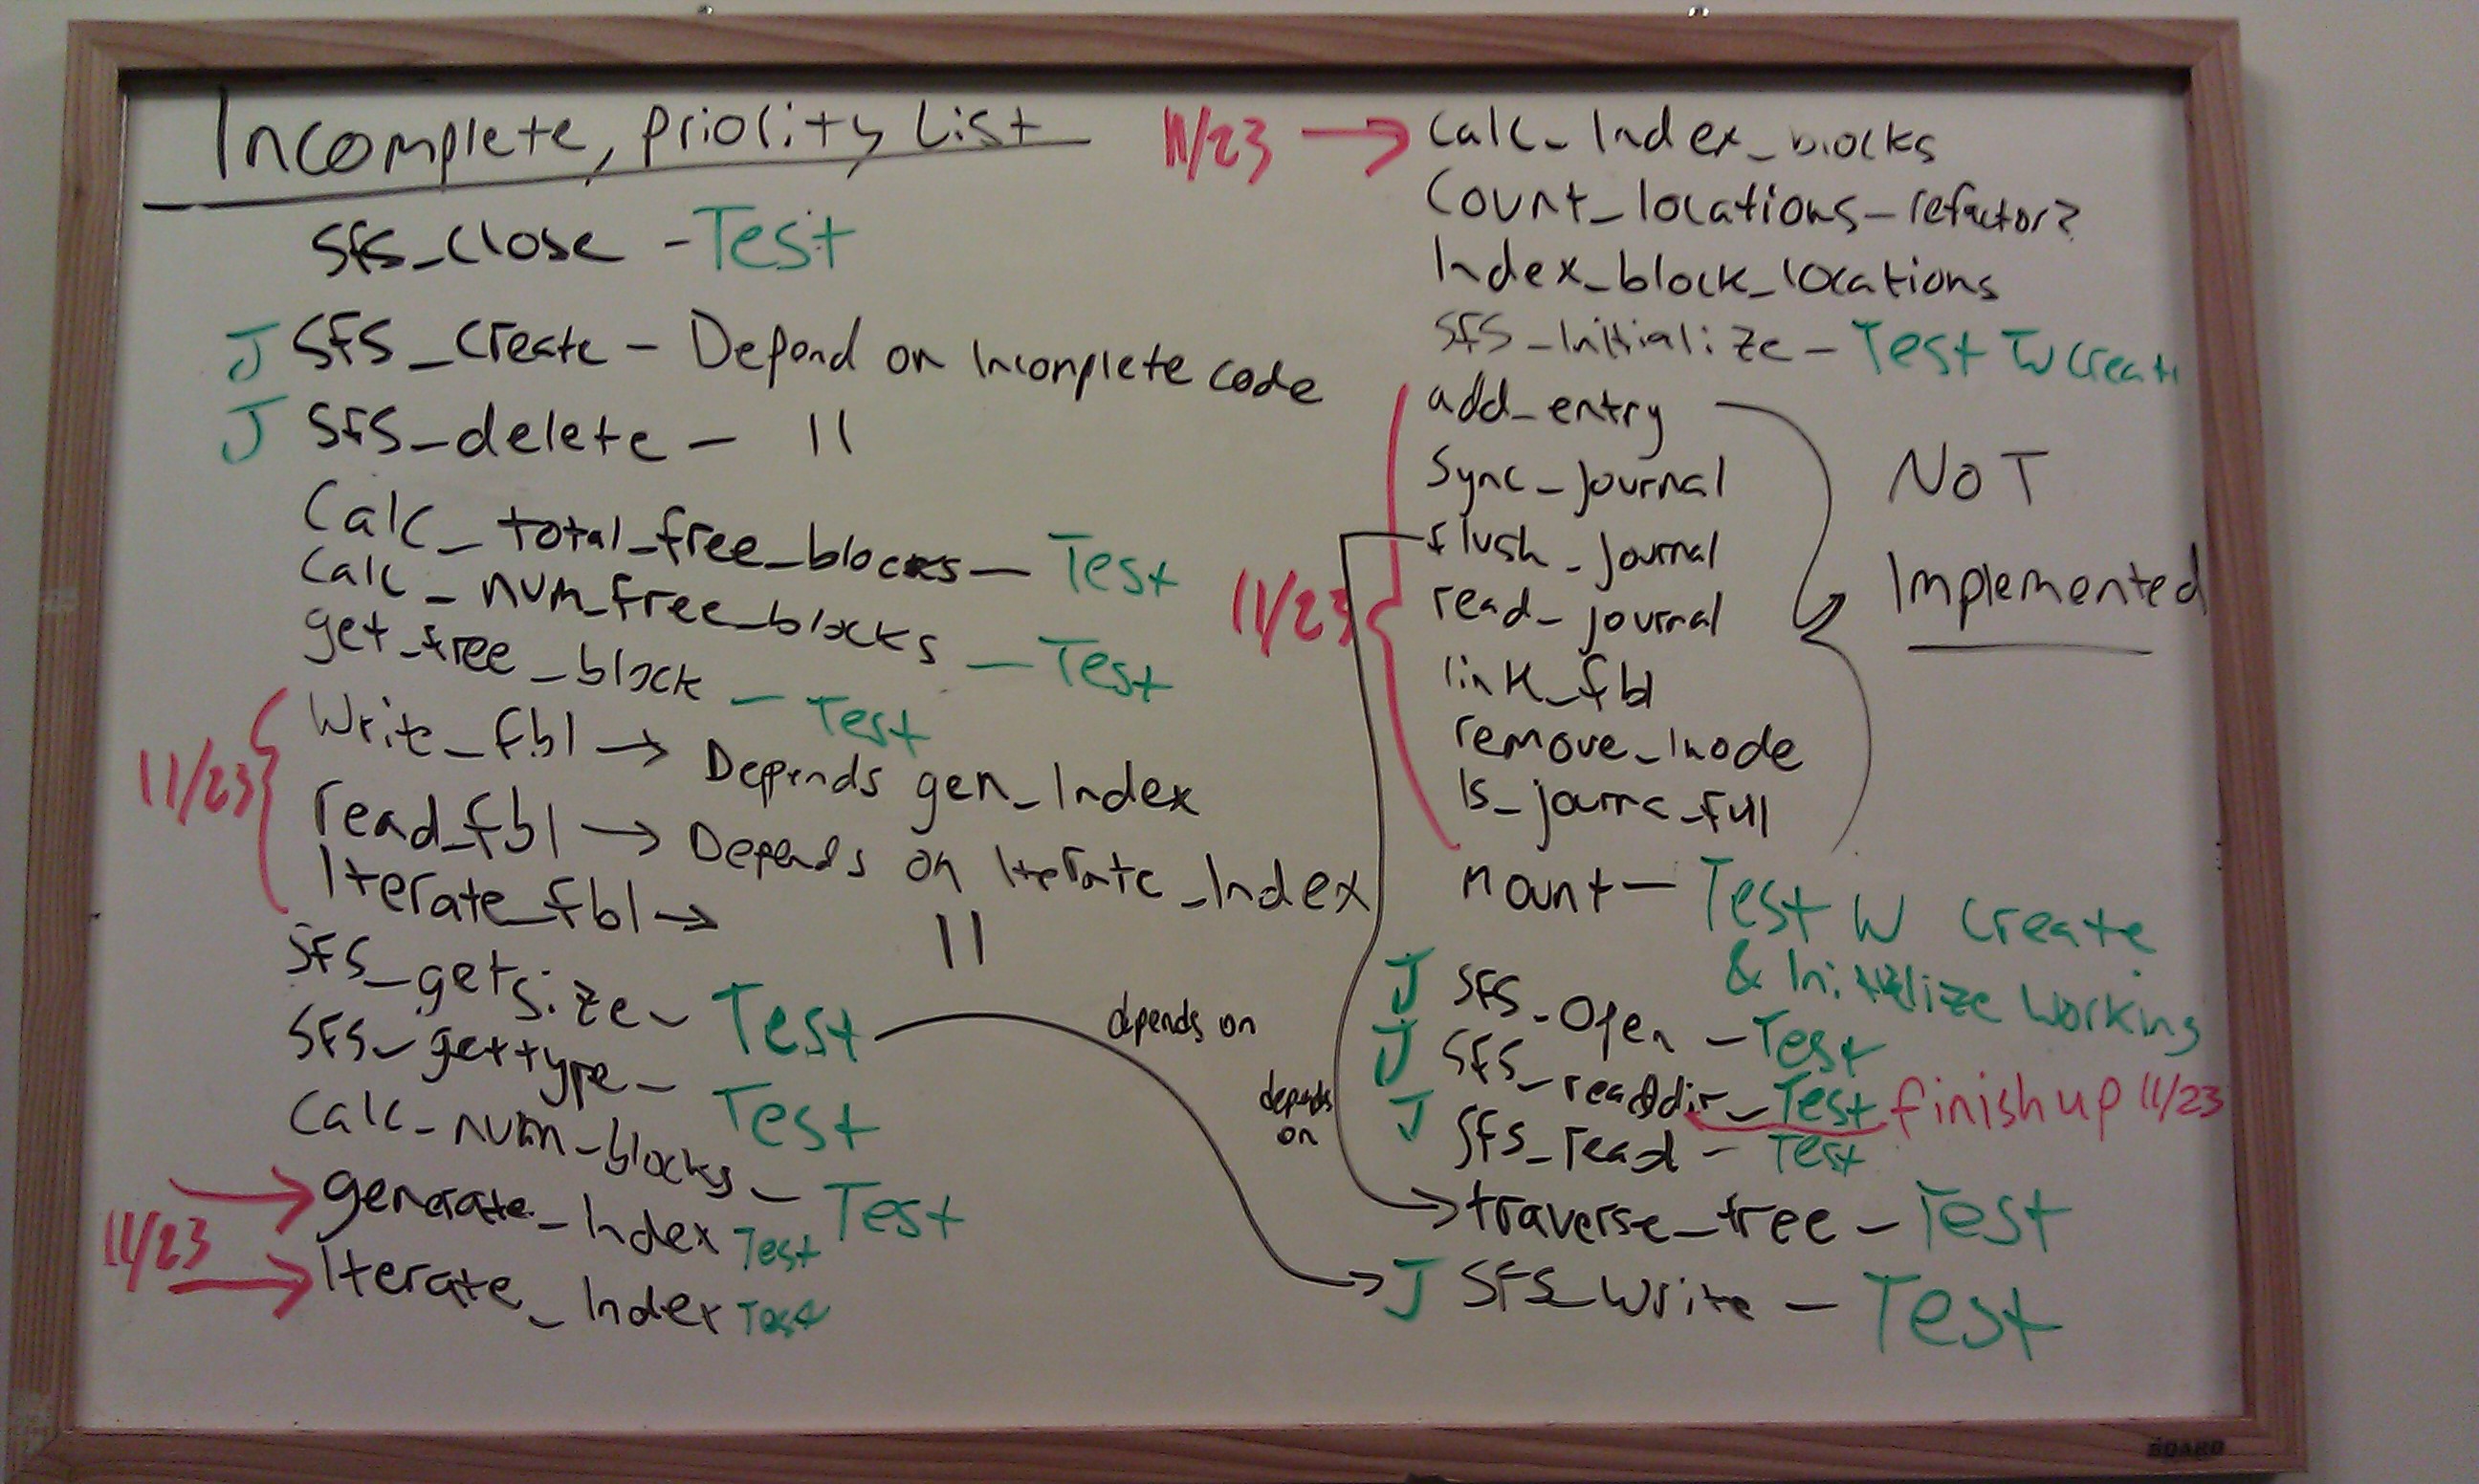 Incomplete, priority List
sfs_close - Test
J SFS_create - Depend on Incomplete code
J SFS_delete - 11
Calc_total_free_blocks - Test
Calc_num_free_blocks - Test
get_free_block - Test
11/23
Write_fbl → Depends gen_Index
read_fbl → Depends on Iterate_Index
Iterate_fbl → 11
SFS_getsize - Test
SFS_gettype - Test
Calc_num_blocks - Test
11/23
generate_Index Test
Iterate_Index Test
depends on
depends
on
11/23 → Calc_Index_blocks
Count_locations - refactor?
Index_block_locations
SFS_Initialize - Test W Create
11/23
add_entry
Sync_journal
flush_journal
read_journal
link_fbl
remove_Inode
Is_journ_full
NOT
Implemented
mount - Test W Create
& Initialize Working
J SFS_open - Test
J SFS_readdir - Test finish up 11/23
J SFS_read - Test
traverse_tree - Test
J SFS_Write - Test
BOARD